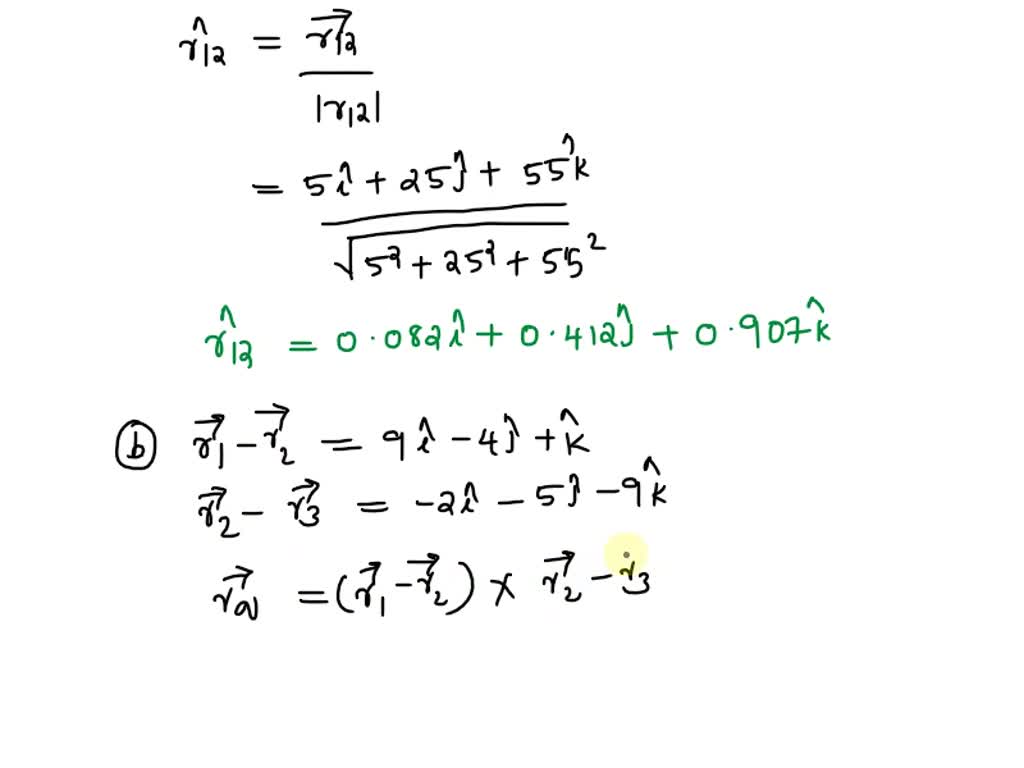 r̂₁₂ = r⃗₁₂
|r₁₂|
= 5î + 25ĵ + 55k̂
√5² + 25² + 55²
r̂₁₂ = 0.082î + 0.412ĵ + 0.907k̂
(b) r⃗₁ − r⃗₂ = 9î − 4ĵ + k̂
r⃗₂ − r⃗₃ = −2î − 5ĵ − 9k̂
= (r⃗₁ − r⃗₂) × r⃗₂ − r₃